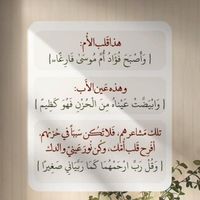 هذا قلب الأُم:
{ وَأَصْبَحَ فُؤَادُ أُمِّ مُوسَىٰ فَارِغًا }
وهذه عين الأب:
{ وَابْيَضَّتْ عَيْنَاهُ مِنَ الْحُزْنِ فَهُوَ كَظِيمٌ }
تلك مشاعرهم، فلا تكن سببًا في حزنهم،
أفرح قلب أمك، وكن نور عيني والدك
{ وَقُل رَّبِّ ارْحَمْهُمَا كَمَا رَبَّيَانِي صَغِيرًا }